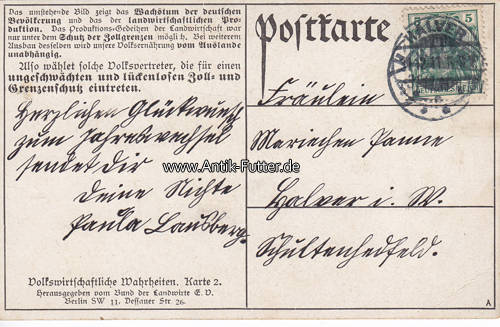 Das umstehende Bild zeigt das Wachstum der deutschen
Bevölkerung und das der landwirtschaftlichen Pro-
duktion. Das Produktions-Gedeihen der Landwirtschaft war
nur unter dem Schutz der Zollgrenzen möglich. Bei weiterem
Ausbau desselben wird unsere Volksernährung vom Auslande
unabhängig.
Also wählet solche Volksvertreter, die für einen
ungeschwächten und lückenlosen Zoll- und
Grenzenschutz eintreten.
Postkarte
5
5
HALVER
Herzlichen Glückwunsch
zum Jahreswechsel
sendet Dir
Deine Nichte
Paula Lausberg.
Fräulein
Mariechen Panne
Halver i. W.
Schultenhedfeld.
www.Antik-Futter.de
Volkswirtschaftliche Wahrheiten. Karte 2.
Herausgegeben vom Bund der Landwirte E. V.
Berlin SW 11. Dessauer Str. 26.
A